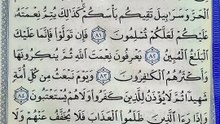 الْحَرَّ وَسَرَابِيلَ تَقِيكُم بَأْسَكُمْ كَذَٰلِكَ يُتِمُّ نِعْمَتَهُ
عَلَيْكُمْ لَعَلَّكُمْ تُسْلِمُونَ ٨١ فَإِن تَوَلَّوْا فَإِنَّمَا عَلَيْكَ
الْبَلَٰغُ الْمُبِينُ ٨٢ يَعْرِفُونَ نِعْمَتَ اللَّهِ ثُمَّ يُنكِرُونَهَا
وَأَكْثَرُهُمُ الْكَٰفِرُونَ ٨٣ وَيَوْمَ نَبْعَثُ مِن كُلِّ أُمَّةٍ
شَهِيدًا ثُمَّ لَا يُؤْذَنُ لِلَّذِينَ كَفَرُوا وَلَا هُمْ يُسْتَعْتَبُونَ
٨٤ وَإِذَا رَءَا الَّذِينَ ظَلَمُوا الْعَذَابَ فَلَا يُخَفَّفُ عَنْهُمْ وَلَا